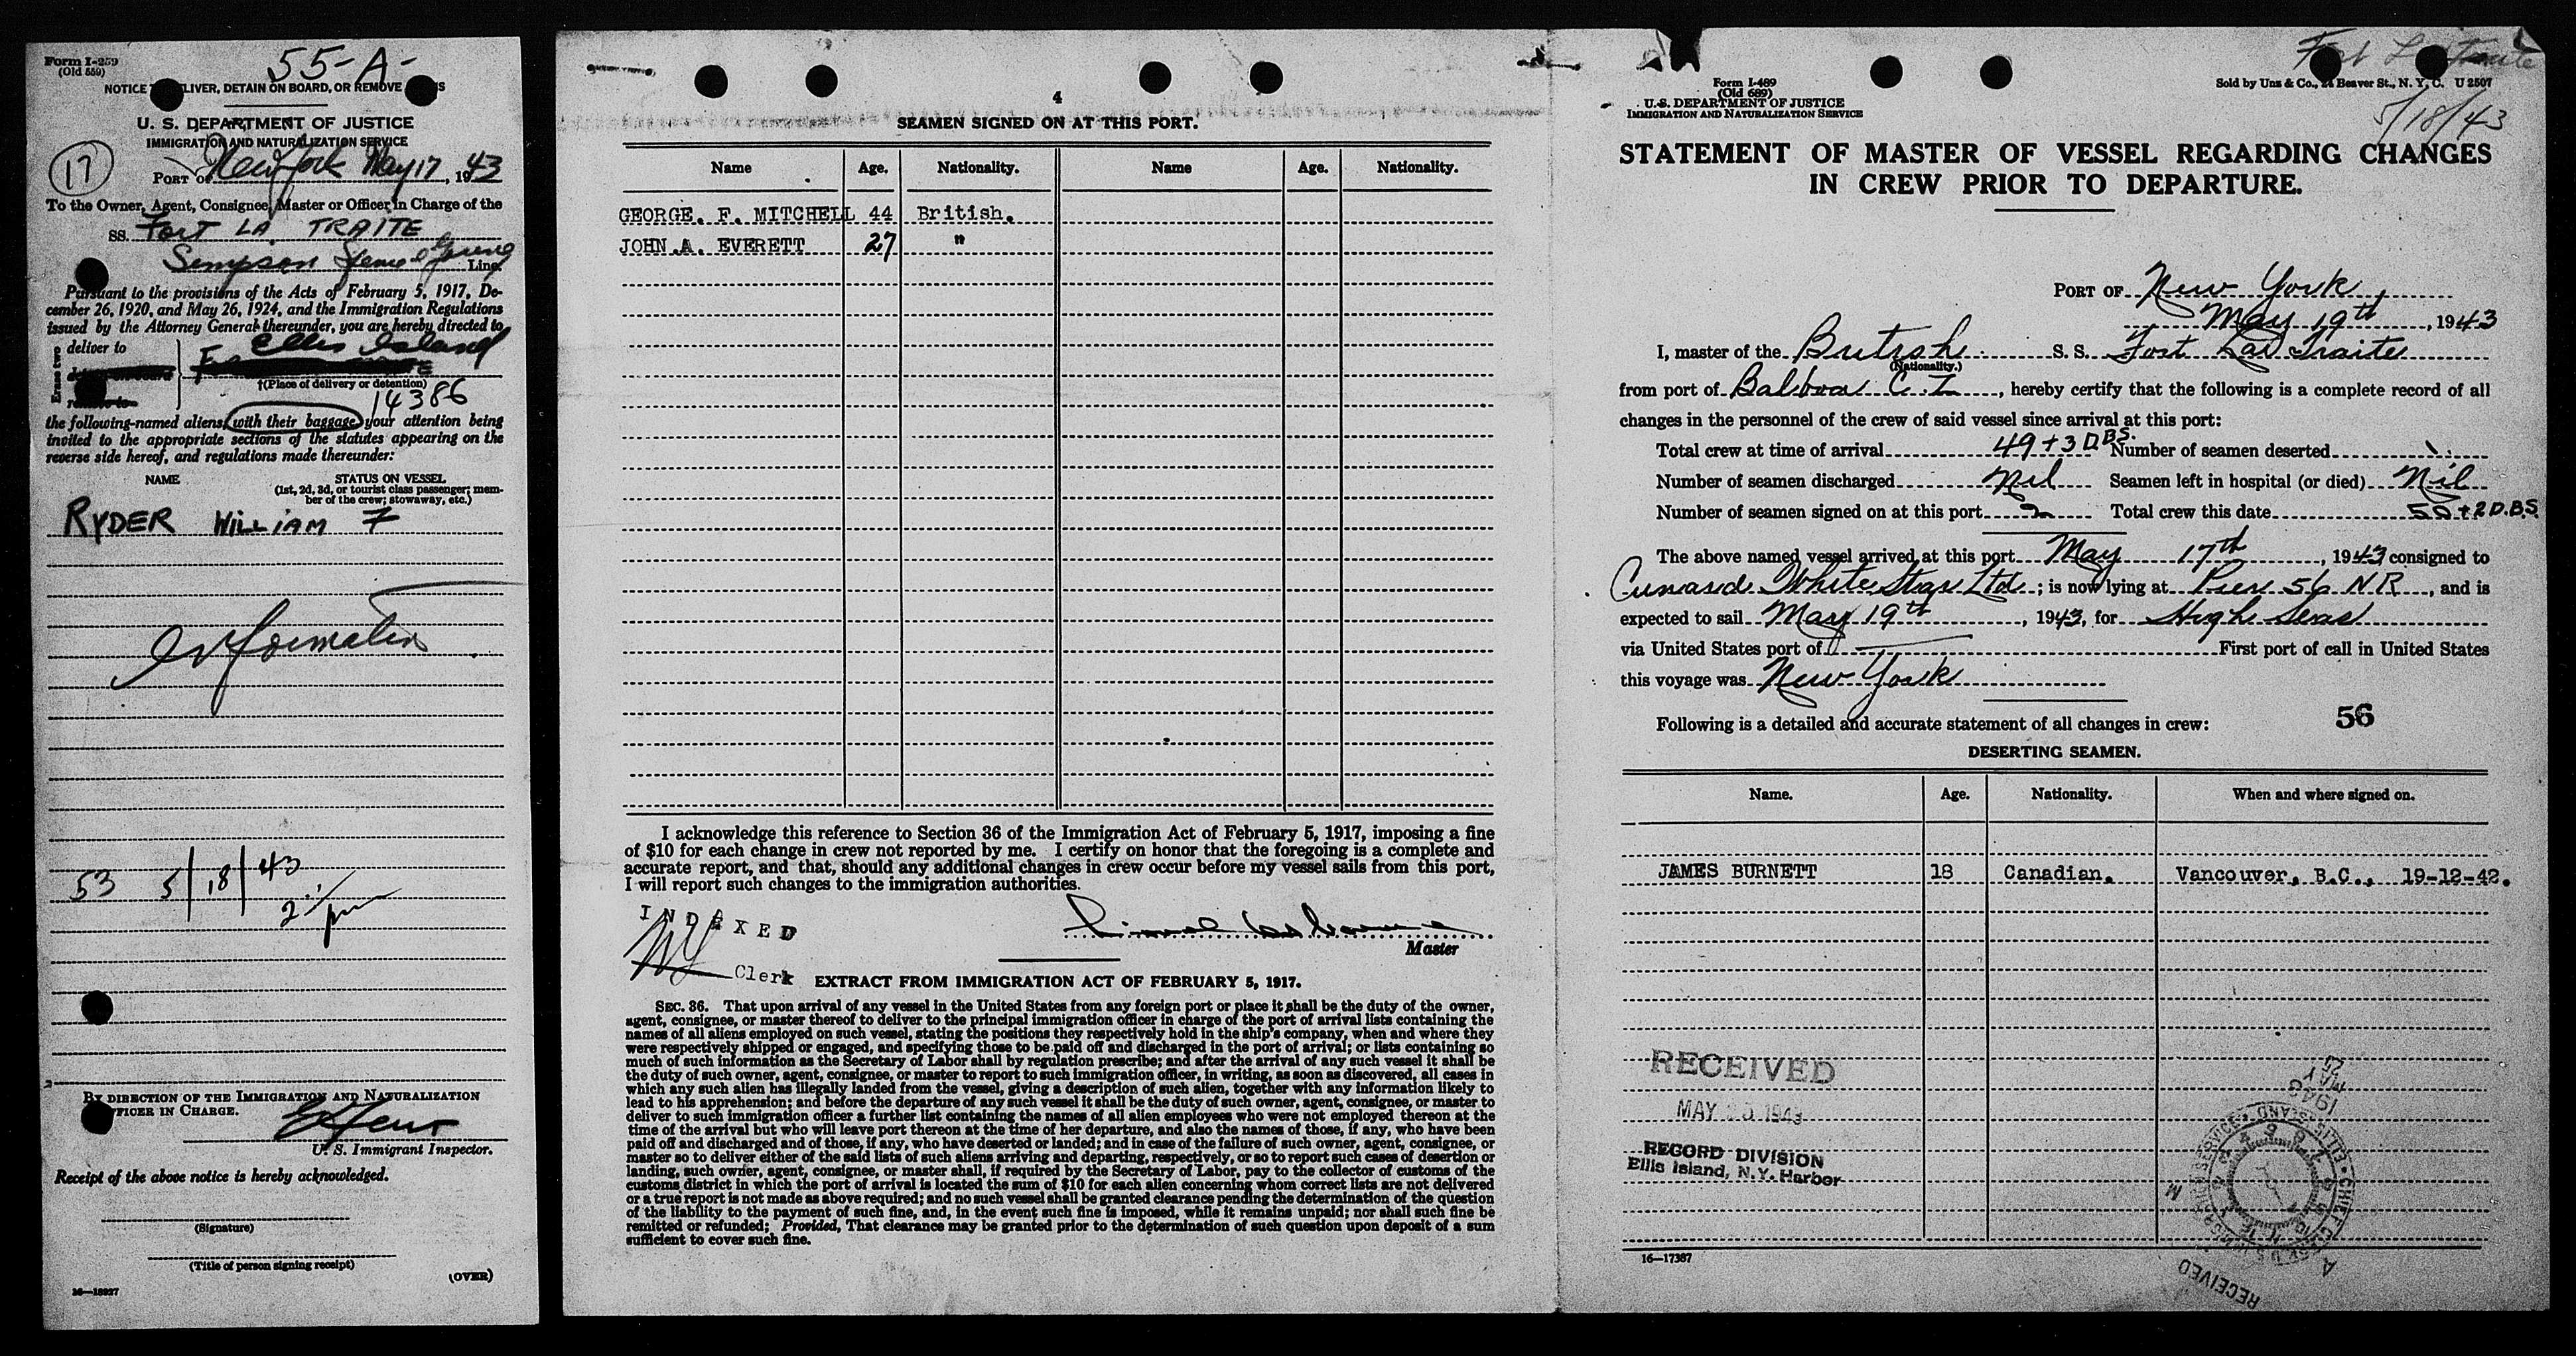 Form I-259
(Old 559)
55-A-
NOTICE LIVER, DETAIN ON BOARD, OR REMOVE S
U. S. DEPARTMENT OF JUSTICE
IMMIGRATION AND NATURALIZATION SERVICE
17
PORT OF New York May 17, 1943
To the Owner, Agent, Consignee, Master or Officer in Charge of the
SS. Fort LA TRAITE
Simpson Young Line.
Pursuant to the provisions of the Acts of February 5, 1917, De-
cember 26, 1920, and May 26, 1924, and the Immigration Regulations
issued by the Attorney General thereunder, you are hereby directed to
Erase two
deliver to
Ellis Island
†(Place of delivery or detention)
14386
the following-named aliens, with their baggage, your attention being
invited to the appropriate sections of the statutes appearing on the
reverse side hereof, and regulations made thereunder:
NAME STATUS ON VESSEL
(1st, 2d, 3d, or tourist class passenger; mem-
ber of the crew; stowaway, etc.)
RYDER WILLIAM F
Information
53 5/18/43
2 pm
BY DIRECTION OF THE IMMIGRATION AND NATURALIZATION
FFICER IN CHARGE.
U. S. Immigrant Inspector.
Receipt of the above notice is hereby acknowledged.
(Signature)
(Title of person signing receipt)
(OVER)
16—18927
4
SEAMEN SIGNED ON AT THIS PORT.
Name Age. Nationality. Name Age. Nationality.
GEORGE. F. MITCHELL 44 British.
JOHN.A. EVERETT 27 "
I acknowledge this reference to Section 36 of the Immigration Act of February 5, 1917, imposing a fine
of $10 for each change in crew not reported by me. I certify on honor that the foregoing is a complete and
accurate report, and that, should any additional changes in crew occur before my vessel sails from this port,
I will report such changes to the immigration authorities.
INDEXED
Master
NY Clerk
EXTRACT FROM IMMIGRATION ACT OF FEBRUARY 5, 1917.
SEC. 36. That upon arrival of any vessel in the United States from any foreign port or place it shall be the duty of the owner,
agent, consignee, or master thereof to deliver to the principal immigration officer in charge of the port of arrival lists containing the
names of all aliens employed on such vessel, stating the positions they respectively hold in the ship's company, when and where they
were respectively shipped or engaged, and specifying those to be paid off and discharged in the port of arrival; or lists containing so
much of such information as the Secretary of Labor shall by regulation prescribe; and after the arrival of any such vessel it shall be
the duty of such owner, agent, consignee, or master to report to such immigration officer, in writing, as soon as discovered, all cases in
which any such alien has illegally landed from the vessel, giving a description of such alien, together with any information likely to
lead to his apprehension; and before the departure of any such vessel it shall be the duty of such owner, agent, consignee, or master to
deliver to such immigration officer a further list containing the names of all alien employees who were not employed thereon at the
time of the arrival but who will leave port thereon at the time of her departure, and also the names of those, if any, who have been
paid off and discharged and of those, if any, who have deserted or landed; and in case of the failure of such owner, agent, consignee, or
master so to deliver either of the said lists of such aliens arriving and departing, respectively, or so to report such cases of desertion or
landing, such owner, agent, consignee, or master shall, if required by the Secretary of Labor, pay to the collector of customs of the
customs district in which the port of arrival is located the sum of $10 for each alien concerning whom correct lists are not delivered
or a true report is not made as above required; and no such vessel shall be granted clearance pending the determination of the question
of the liability to the payment of such fine, and, in the event such fine is imposed, while it remains unpaid; nor shall such fine be
remitted or refunded; Provided, That clearance may be granted prior to the determination of such question upon deposit of a sum
sufficient to cover such fine.
Fort La Traite
Form I-489
(Old 689)
U.S. DEPARTMENT OF JUSTICE
IMMIGRATION AND NATURALIZATION SERVICE
Sold by Unz & Co., 24 Beaver St., N. Y. C. U 2507
5/18/43
STATEMENT OF MASTER OF VESSEL REGARDING CHANGES
IN CREW PRIOR TO DEPARTURE.
PORT OF New York
May 19th, 1943
I, master of the British S. S. Fort La Traite
(Nationality.)
from port of Balboa C.Z., hereby certify that the following is a complete record of all
changes in the personnel of the crew of said vessel since arrival at this port:
Total crew at time of arrival 49 + 3 D.B.S. Number of seamen deserted 1
Number of seamen discharged Nil Seamen left in hospital (or died) Nil
Number of seamen signed on at this port 2 Total crew this date 50 + 2 D.B.S.
The above named vessel arrived at this port May 17th, 1943 consigned to
Cunard White Star Ltd.; is now lying at Pier 56 NR, and is
expected to sail May 19th, 1943, for High Seas
via United States port of First port of call in United States
this voyage was New York
Following is a detailed and accurate statement of all changes in crew:
56
DESERTING SEAMEN.
Name. Age. Nationality. When and where signed on.
JAMES BURNETT 18 Canadian. Vancouver, B.C., 19-12-42.
RECEIVED
MAY 25 1943
RECORD DIVISION
Ellis Island, N.Y. Harbor
1943
MAY
25
RECEIVED
16—17387